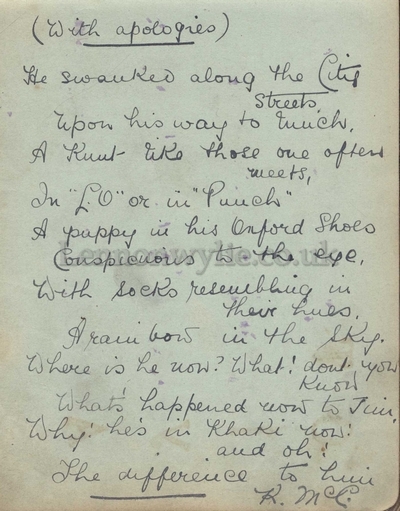 (With apologies)
He swanked along the City
Streets,
Upon his way to lunch,
A Knut like those one often
meets,
In "L.O" or in "Punch"
A pappy in his Oxford Shoes
Conspicuous to the eye,
With socks resembling in
their hues,
A rainbow in the sky.
Where is he now? What! dont you
know
What's happened now to Jim,
Why! he's in Khaki now!
and oh!
The difference to him
K. McC.